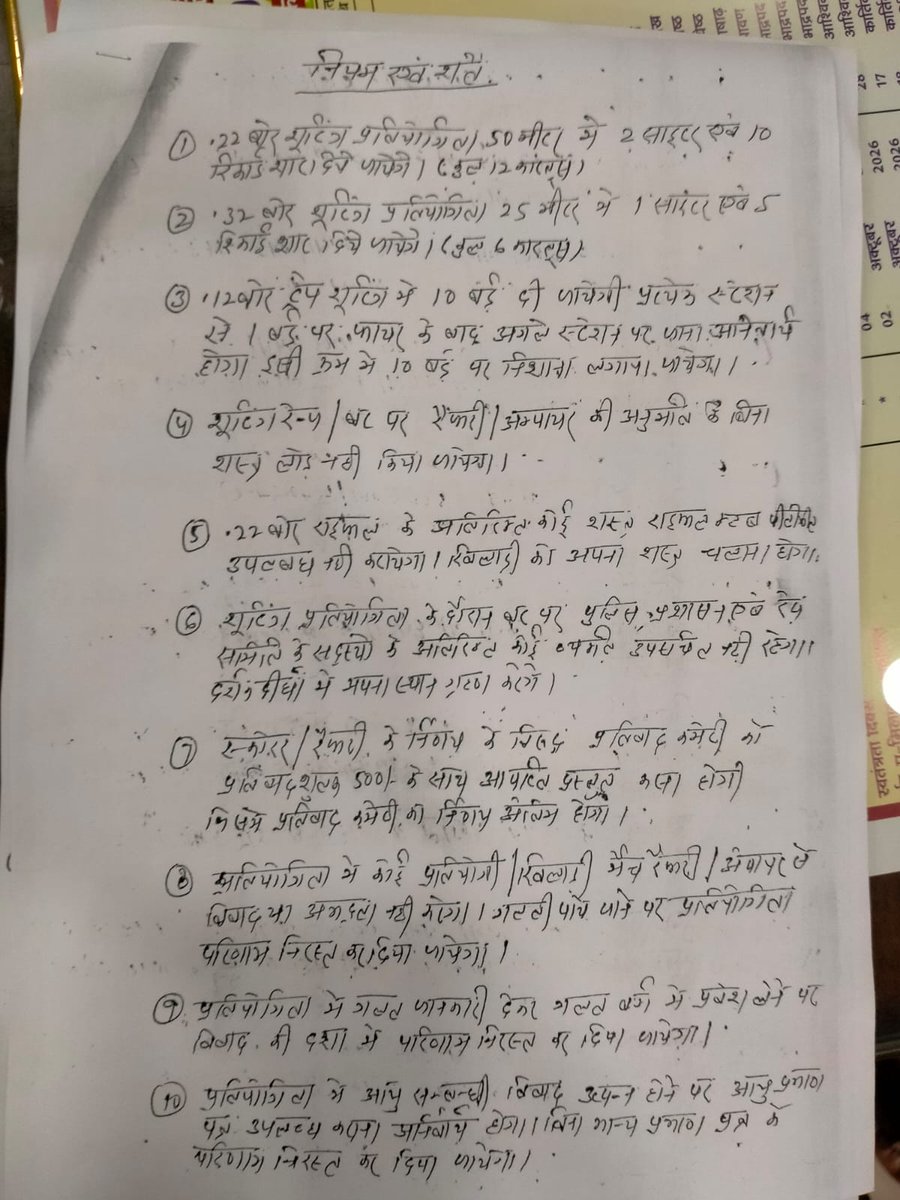 नियम एवं शर्तें
① .22 बोर शूटिंग प्रतियोगिता 50 मीटर में 2 साइटर एवं 10
रिकार्ड शाट दिये जायेंगे। (कुल 12 कारतूस)
② .32 बोर शूटिंग प्रतियोगिता 25 मीटर में 1 साइटर एवं 5
रिकार्ड शाट दिये जायेंगे। (कुल 6 कारतूस)
③ .12 बोर ट्रैप शूटिंग में 10 बर्ड दी जायेगी प्रत्येक स्टेशन
से 1 बर्ड पर फायर के बाद अगले स्टेशन पर जाना अनिवार्य
होगा इसी क्रम में 10 बर्ड पर निशाना लगाया जायेगा।
④ शूटिंग रेन्ज / बट पर रैफरी / अम्पायर की अनुमति के बिना
शस्त्र लोड नही किया जायेगा।
⑤ .22 बोर राईफल के अतिरिक्त कोई शस्त्र राइफल क्लब
उपलब्ध नही करायेगा। खिलाड़ी को अपना शस्त्र लाना होगा।
⑥ शूटिंग प्रतियोगिता के दौरान बट पर पुलिस, प्रशासन एवं
समिति के सदस्यो के अतिरिक्त कोई व्यक्ति उपस्थित नही रहेगा।
दर्शक दीर्घा में अपना स्थान ग्रहण करेंगे।
⑦ स्कोरर / रैफरी के निर्णय के विरुद्ध प्रतिवाद कमेटी को
प्रतिवाद शुल्क 500/- के साथ आपत्ति प्रस्तुत करना होगी
जिसमे प्रतिवाद कमेटी का निर्णय अंतिम होगा।
⑧ प्रतियोगिता में कोई प्रतियोगी / खिलाड़ी मैच रैफरी / अंपायर से
विवाद या अभद्रता नही करेगा। गलती पाये जाने पर प्रतियोगिता
परिणाम निरस्त कर दिया जायेगा।
⑨ प्रतियोगिता में गलत जानकारी देकर गलत वर्ग में प्रवेश लेने पर
विवाद की दशा में परिणाम निरस्त कर दिया जायेगा।
⑩ प्रतियोगिता में आयु सम्बन्धी विवाद उत्पन्न होने पर आयु प्रमाण
पत्र उपलब्ध कराना अनिवार्य होगा। बिना मान्य प्रमाण पत्र के
परिणाम निरस्त कर दिया जायेगा।
भाद्रपद
आश्विन
कार्तिक
28
17
2026
2026
अक्टूबर
अक्टूबर
04
02
*
स्वतंत्रता दिवस